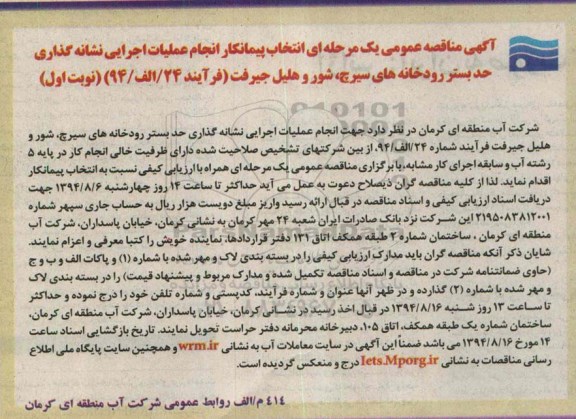 آگهی مناقصه عمومی یک مرحله ای انتخاب پیمانکار انجام عملیات اجرایی نشانه گذاری
حد بستر رودخانه های سیرچ، شور و هلیل جیرفت (فرآیند ۲۴/الف/۹۴) (نوبت اول)
شرکت آب منطقه ای کرمان در نظر دارد جهت انجام عملیات اجرایی نشانه گذاری حد بستر رودخانه های سیرچ، شور و
هلیل جیرفت فرآیند شماره ۲۴/الف/۹۴، از بین شرکتهای تشخیص صلاحیت شده دارای ظرفیت خالی انجام کار در پایه ۵
رشته آب و سابقه اجرای کار مشابه، با برگزاری مناقصه عمومی یک مرحله ای همراه با ارزیابی کیفی نسبت به انتخاب پیمانکار
اقدام نماید. لذا از کلیه مناقصه گران ذیصلاح دعوت به عمل می آید حداکثر تا ساعت ۱۴ روز چهارشنبه ۱۳۹۴/۸/۶ جهت
دریافت اسناد ارزیابی کیفی و اسناد مناقصه در قبال ارائه رسید واریز مبلغ دویست هزار ریال به حساب جاری سپهر شماره
۲۱۹۵۰۸۳۸۱۲۰۰۱ این شرکت نزد بانک صادرات ایران شعبه ۲۴ مهر کرمان به نشانی کرمان، خیابان پاسداران، شرکت آب
منطقه ای کرمان ، ساختمان شماره ۲ طبقه همکف اتاق ۱۳۱ دفتر قراردادها، نماینده خویش را کتبا معرفی و اعزام نمایند.
شایان ذکر آنکه مناقصه گران باید مدارک ارزیابی کیفی را در بسته بندی لاک و مهر شده با شماره (۱) و پاکات الف و ب و ج
(حاوی ضمانتنامه شرکت در مناقصه و اسناد مناقصه تکمیل شده و مدارک مربوط و پیشنهاد قیمت) را در بسته بندی لاک
و مهر شده با شماره (۲) گذارده و در ظهر آنها عنوان و شماره فرآیند، کدپستی و شماره تلفن خود را درج نموده و حداکثر
تا ساعت ۱۳ روز شنبه ۱۳۹۴/۸/۱۶ در قبال اخذ رسید در نشانی کرمان، خیابان پاسداران، شرکت آب منطقه ای کرمان،
ساختمان شماره یک طبقه همکف، اتاق ۱۰۵، دبیرخانه محرمانه دفتر حراست تحویل نمایند. تاریخ بازگشایی اسناد ساعت
۱۴ مورخ ۱۳۹۴/۸/۱۶ می باشد ضمناً این آگهی در سایت معاملات آب به نشانی wrm.ir و همچنین سایت پایگاه ملی اطلاع
رسانی مناقصات به نشانی Iets.Mporg.ir درج و منعکس گردیده است.
۴۱۴ م/الف روابط عمومی شرکت آب منطقه ای کرمان